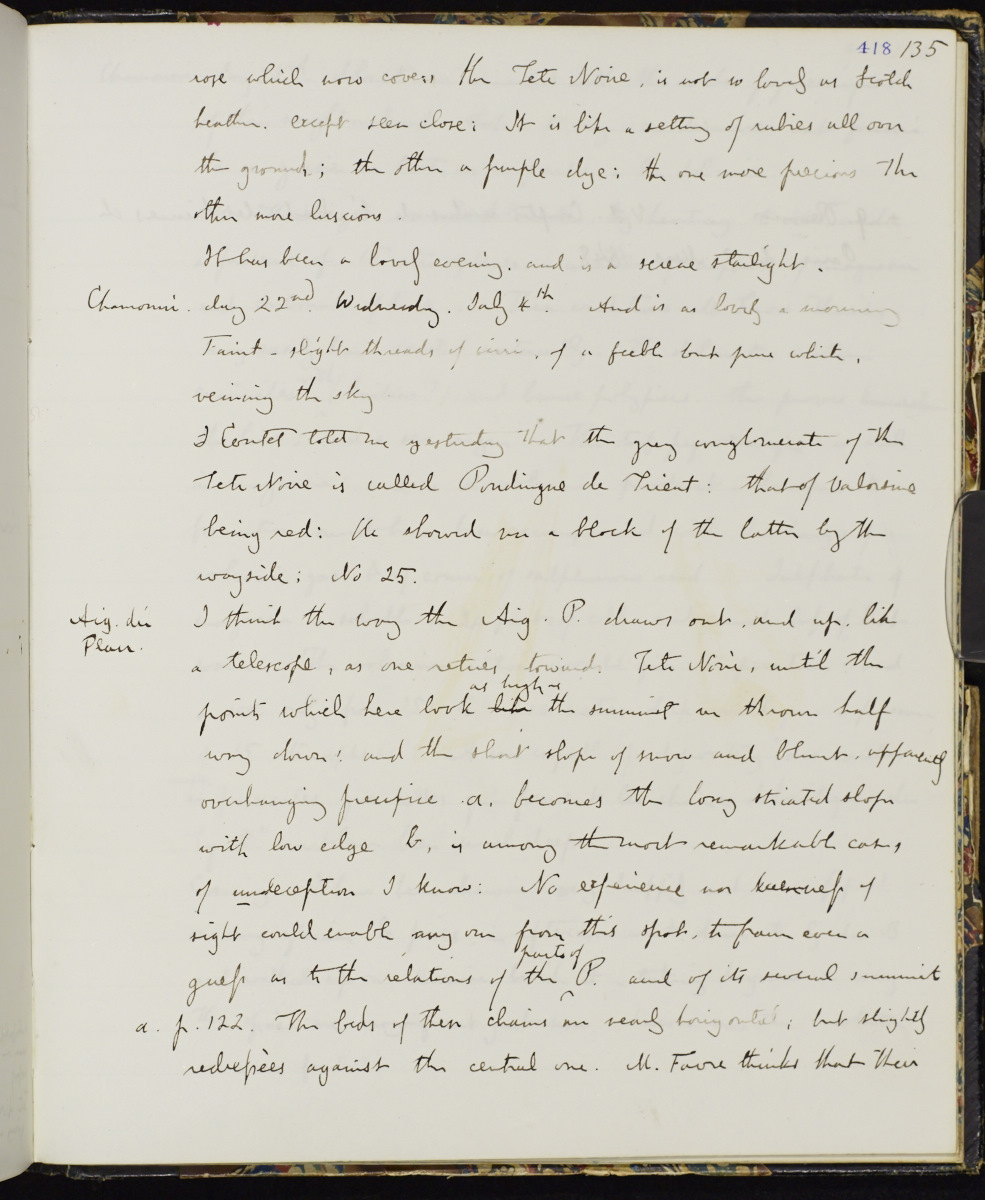 418 135
rose which now covers the Tete Noire, is not so lovely as Scotch
heather. except seen close: It is like a setting of rubies all over
the ground; the other a purple dye: the one more precious The
other more luscious.
It has been a lovely evening. and is a serene starlight.
Chamonix. day 22nd. Wednesday. July 4th. And is as lovely a morning
Faint - slight threads of cirri, of a feeble but pure white,
veining the sky
J Coutet told me yesterday that the grey conglomerate of the
Tete Noire is called Poudingue de Trient: that of Valorsine
being red: He showed me a block of the latter by the
wayside; No 25.
Aig. du Plan. I think the way the Aig. P. draws out, and up, like
a telescope, as one retires towards Tete Noire, until the
points which here look like as high as the summit are thrown half
way down: and the short slope of snow and blunt, apparently
overhanging precipice a, becomes the long striated slope
with low edge b, is among the most remarkable cases
of undeception I know: No experience nor keenness of
sight could enable any one from this spot, to frame even a
guess as to the relations of the parts of P. and of its several summit
a. p. 122. The beds of these chains are nearly horizontal; but slightly
redressées against the central one. M. Favre thinks that their